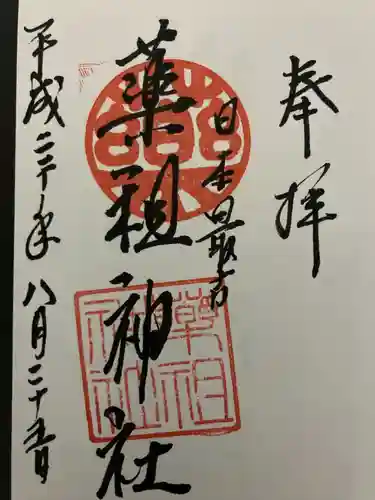 奉拝
日本最古
薬祖神社
薬祖
神社
平成二十年八月二十五日